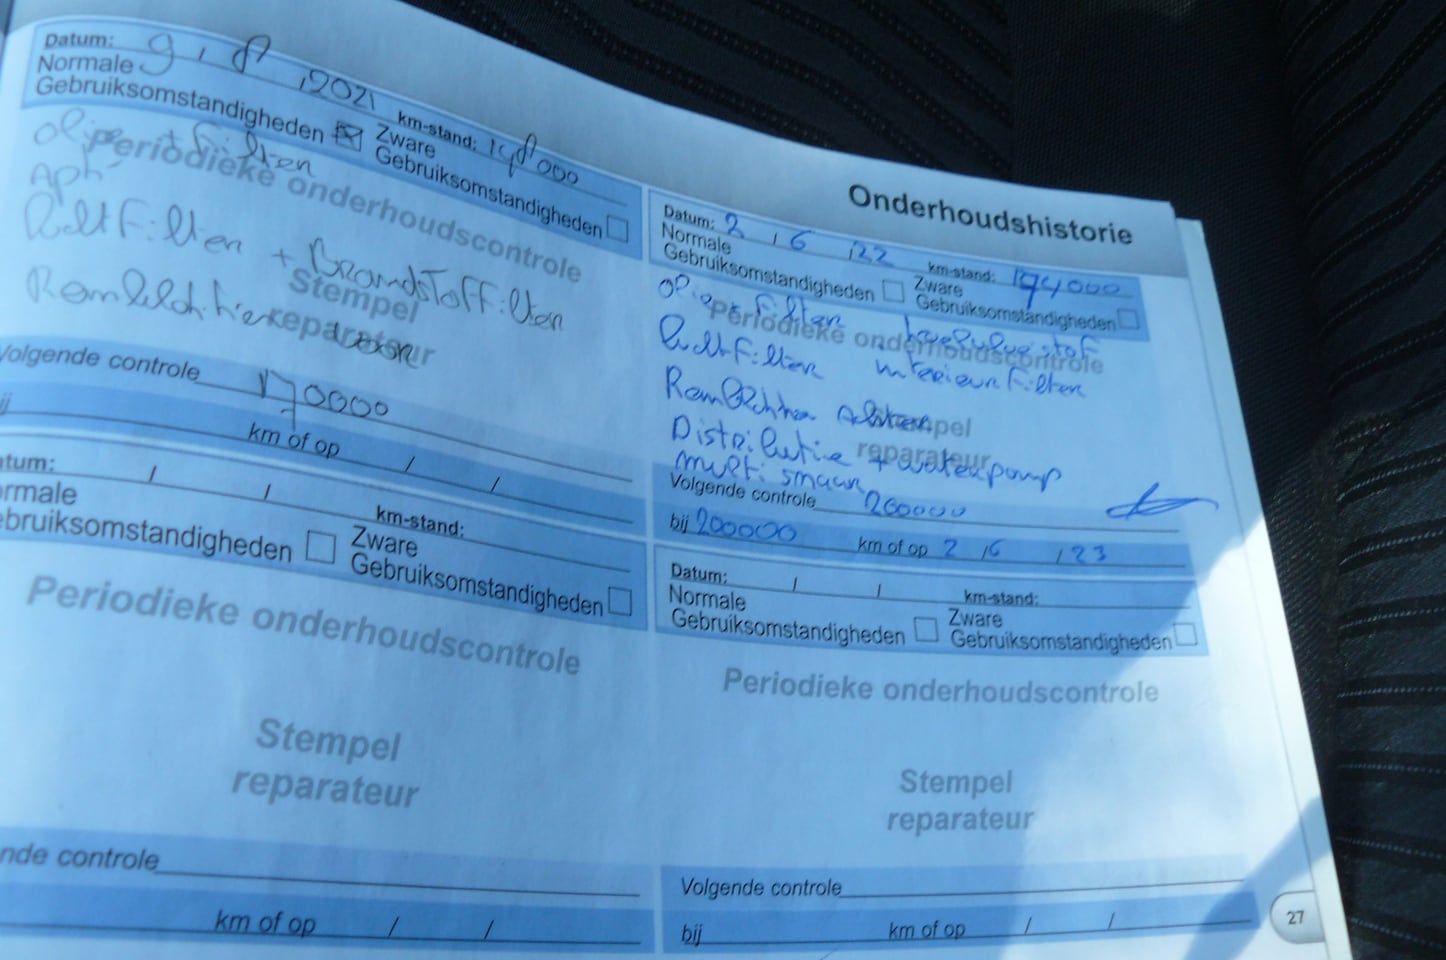 Onderhoudshistorie
Datum: 9 / 8 / 2021 km-stand: 148000
Normale Gebruiksomstandigheden Zware Gebruiksomstandigheden
olie + filter
Periodieke onderhoudscontrole
APK
luchtfilter + Brandstoffilter
Stempel
reparateur
Remblokken voor
Volgende controle 170000
ij km of op / /
atum: / / km-stand:
ormale
ebruiksomstandigheden Zware Gebruiksomstandigheden
Periodieke onderhoudscontrole
Stempel
reparateur
nde controle
km of op / /
Datum: 2 / 6 / 22 km-stand: 194000
Normale Gebruiksomstandigheden Zware Gebruiksomstandigheden
olie + filter
Periodieke onderhoudscontrole
luchtfilter interieurfilter
Stempel
reparateur
Distributie + waterpomp
multi snaar
Volgende controle 200000
bij 200000 km of op 2 / 6 / 23
Datum: / / km-stand:
Normale Gebruiksomstandigheden Zware Gebruiksomstandigheden
Periodieke onderhoudscontrole
Stempel
reparateur
Volgende controle
bij km of op / /
27